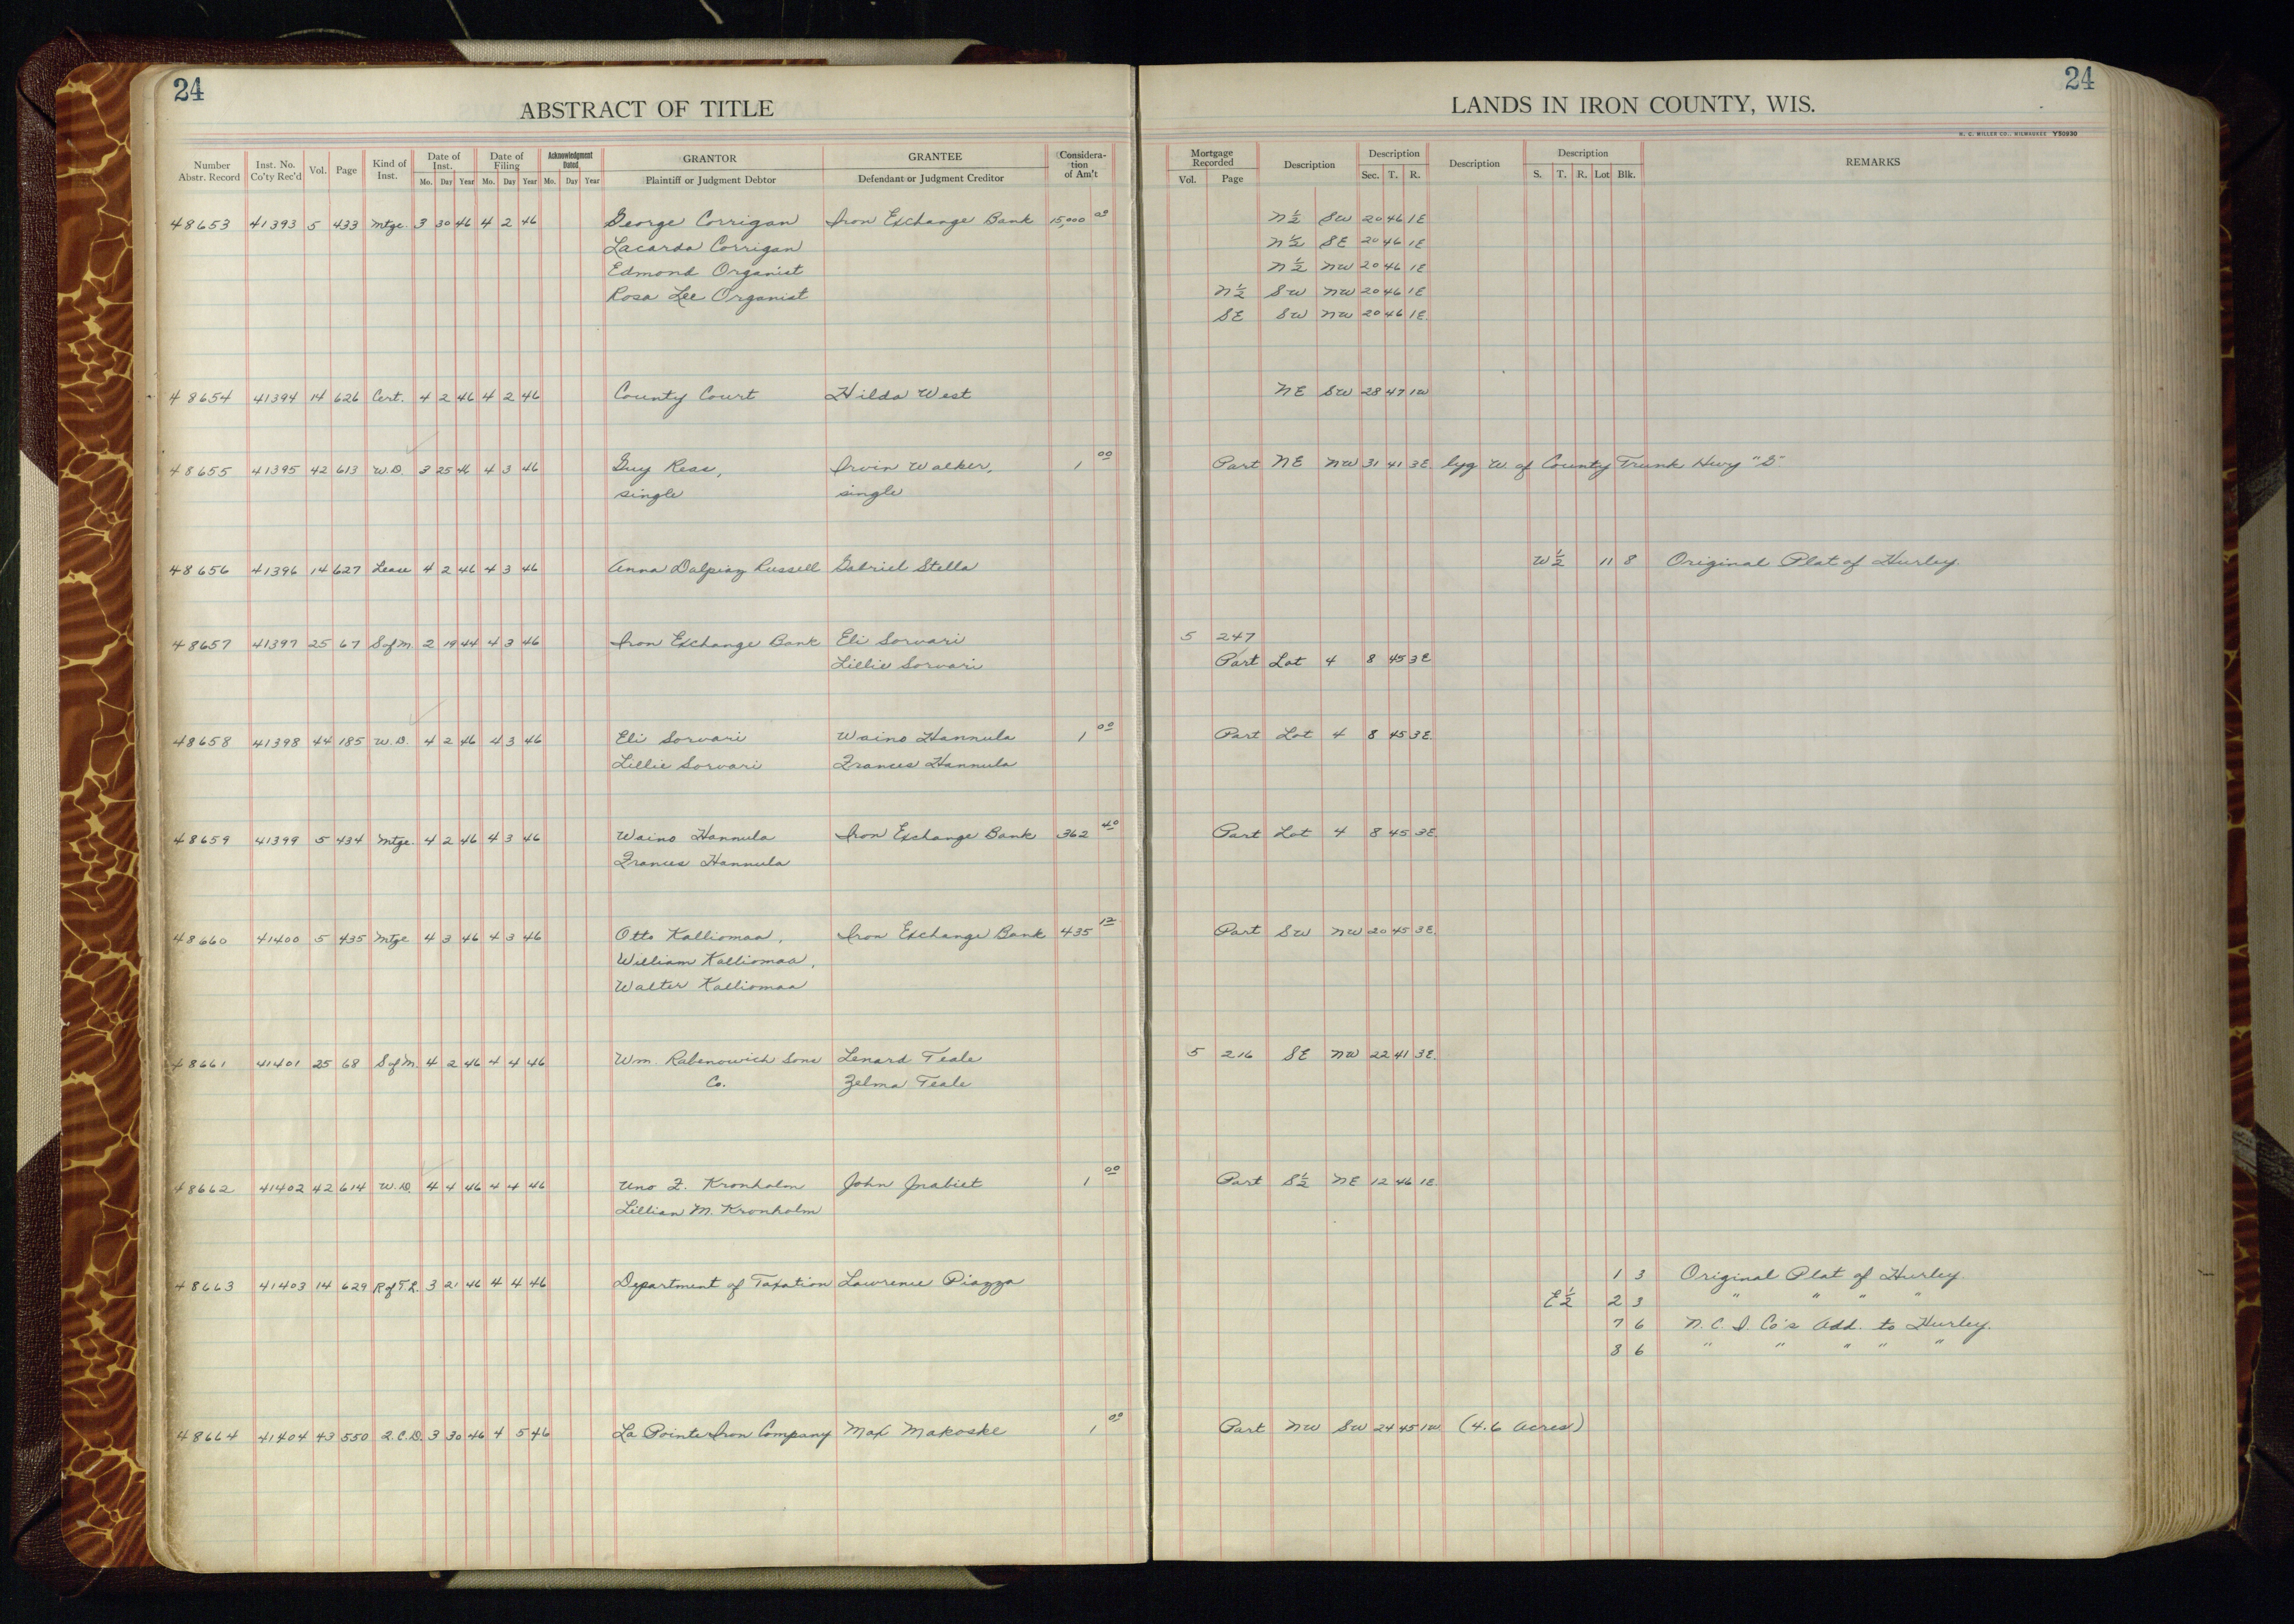 24
ABSTRACT OF TITLE
Number Abstr. Record Inst. No. Co'ty Rec'd Vol. Page Kind of Inst. Date of Inst. Mo. Day Year Date of Filing Mo. Day Year Acknowledgment Dated Mo. Day Year GRANTOR Plaintiff or Judgment Debtor GRANTEE Defendant or Judgment Creditor Consideration of Am't
48653 41393 5 433 Mtge. 3 30 46 4 2 46 George Corrigan Iron Exchange Bank 15,000 00
Lacarda Corrigan
Edmond Organist
Rosa Lee Organist
48654 41394 14 626 Cert. 4 2 46 4 2 46 County Court Hilda West
48655 41395 42 613 W.D. 3 25 46 4 3 46 Guy Reas, Irvin Walker, 1 00
single single
48656 41396 14 627 Lease 4 2 46 4 3 46 Anna Dalpiaz Russell Gabriel Stella
48657 41397 25 67 S of M. 2 19 44 4 3 46 Iron Exchange Bank Eli Sorvari
Lillie Sorvari
48658 41398 44 185 W.D. 4 2 46 4 3 46 Eli Sorvari Waino Hannula 1 00
Lillie Sorvari Frances Hannula
48659 41399 5 434 Mtge. 4 2 46 4 3 46 Waino Hannula Iron Exchange Bank 362 40
Frances Hannula
48660 41400 5 435 Mtge 4 3 46 4 3 46 Otto Kalliomaa, Iron Exchange Bank 435 12
William Kalliomaa,
Walter Kalliomaa
48661 41401 25 68 S of M. 4 2 46 4 4 46 Wm. Rabenowich Sons Lenard Teale
Co. Zelma Teale
48662 41402 42 614 W.D. 4 4 46 4 4 46 Uno F. Kronholm John 1 00
Lillian M. Kronholm
48663 41403 14 629 R of T.L. 3 21 46 4 4 46 Department of Taxation Lawrence Piazza
48664 41404 43 550 Q.C.D. 3 30 46 4 5 46 La Pointe Iron Company Max Makoske 1 00
24
LANDS IN IRON COUNTY, WIS.
H. C. MILLER CO., MILWAUKEE Y50930
Mortgage Recorded Vol. Page Description Description Sec. T. R. Description Description S. T. R. Lot Blk. REMARKS
N½ SW 20 46 1E
N½ SE 20 46 1E
N½ NW 20 46 1E
N½ SW NW 20 46 1E
SE SW NW 20 46 1E
NE SW 28 47 1W
Part NE NW 31 41 3E lyg W of County Trunk Hwy "G"
W½ 11 8 Original Plat of Hurley.
5 247
Part Lot 4 8 45 3E
Part Lot 4 8 45 3E
Part Lot 4 8 45 3E
Part SW NW 20 45 3E.
5 216 SE NW 22 41 3E.
Part S½ NE 12 46 1E
1 3 Original Plat of Hurley.
E½ 2 3 " " " "
7 6 N. C. I. Co's Add. to Hurley.
8 6 " " " " "
Part NW SW 24 45 1W (4.6 acres)